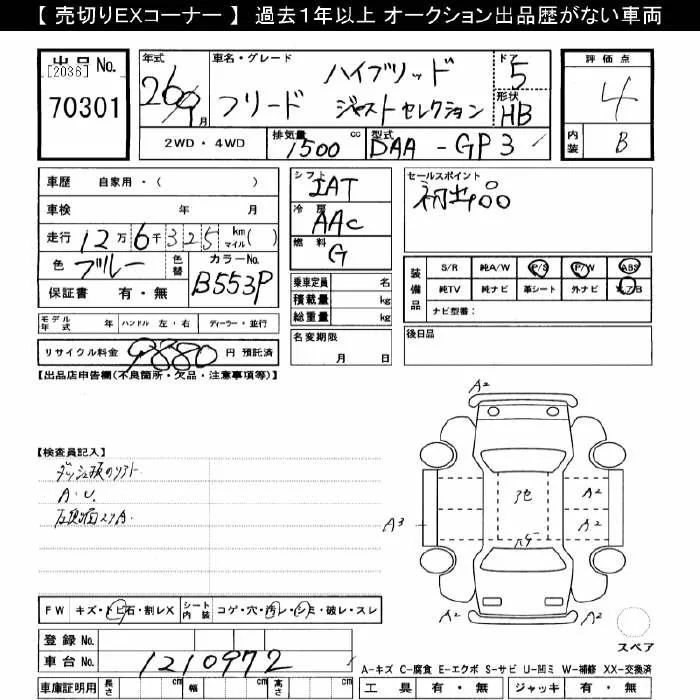 【 売切りEXコーナー 】 過去1年以上 オークション出品歴がない車両
出品 No.
[2036]
70301
年式
269月
車名・グレード
ハイブリッド
フリード ジャストセレクション
ドア
5
形状
HB
評価点
4
内装
B
2WD・4WD
排気量
1500 cc
型式
DAA - GP3
車歴 自家用・( )
車検 年 月
走行 12万6千325 km マイル( )
色 ブルー
色替
カラーNo.
B553P
保証書 有・無
シフト
IAT
冷房
AAC
燃料
G
乗車定員 名
積載量 kg
総重量 kg
セールスポイント
初出品
装備品
S/R 純A/W P/S P/W ABS
純TV 純ナビ 革シート 外ナビ エアB
ナビ型番:
モデル年式 年 ハンドル 左・右 ディーラー・並行
名変期限
月 日
後日品
リサイクル料金 9880 円 預託済
【出品店申告欄(不良箇所・欠品・注意事項等)】
【検査員記入】
A・U
A2
A2
A2
A3
A2
A2
FW キズ・トビ石・割レX シート内装 コゲ・穴・汚レ・シミ・破レ・スレ
登録 No.
車台 No. 1210972
スペア
A-キズ C-腐食 E-エクボ S-サビ U-凹ミ W-補修 XX-交換済
車庫証明用 長さ cm 幅 cm 高さ cm
工具 有・無 ジャッキ 有・無